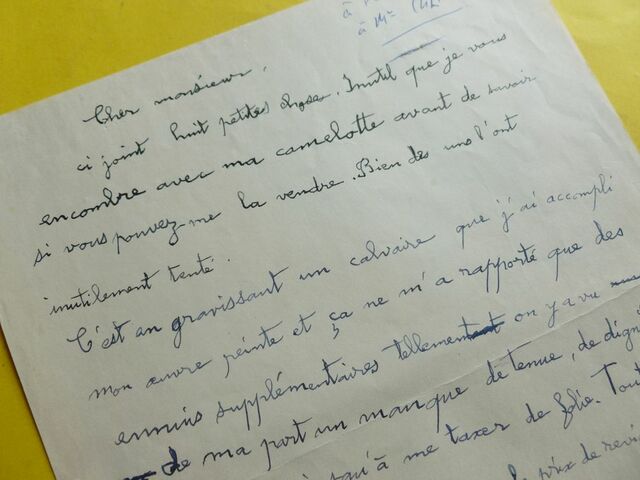 à
à Mme
Cher monsieur,
ci joint huit petites chose. Inutil que je vous
encombre avec ma camelotte avant de savoir
si vous pouvez me la vendre. Bien des uns l'ont
inutilement tenté.
C'est en gravissant un calvaire que j'ai accompli
mon œuvre peinte et ça ne m'a rapporté que des
ennuis supplémentaires tellement on y a vu
de ma part un manque de tenue, de dign
qu'à me taxer de folie. Tout
prix de revi